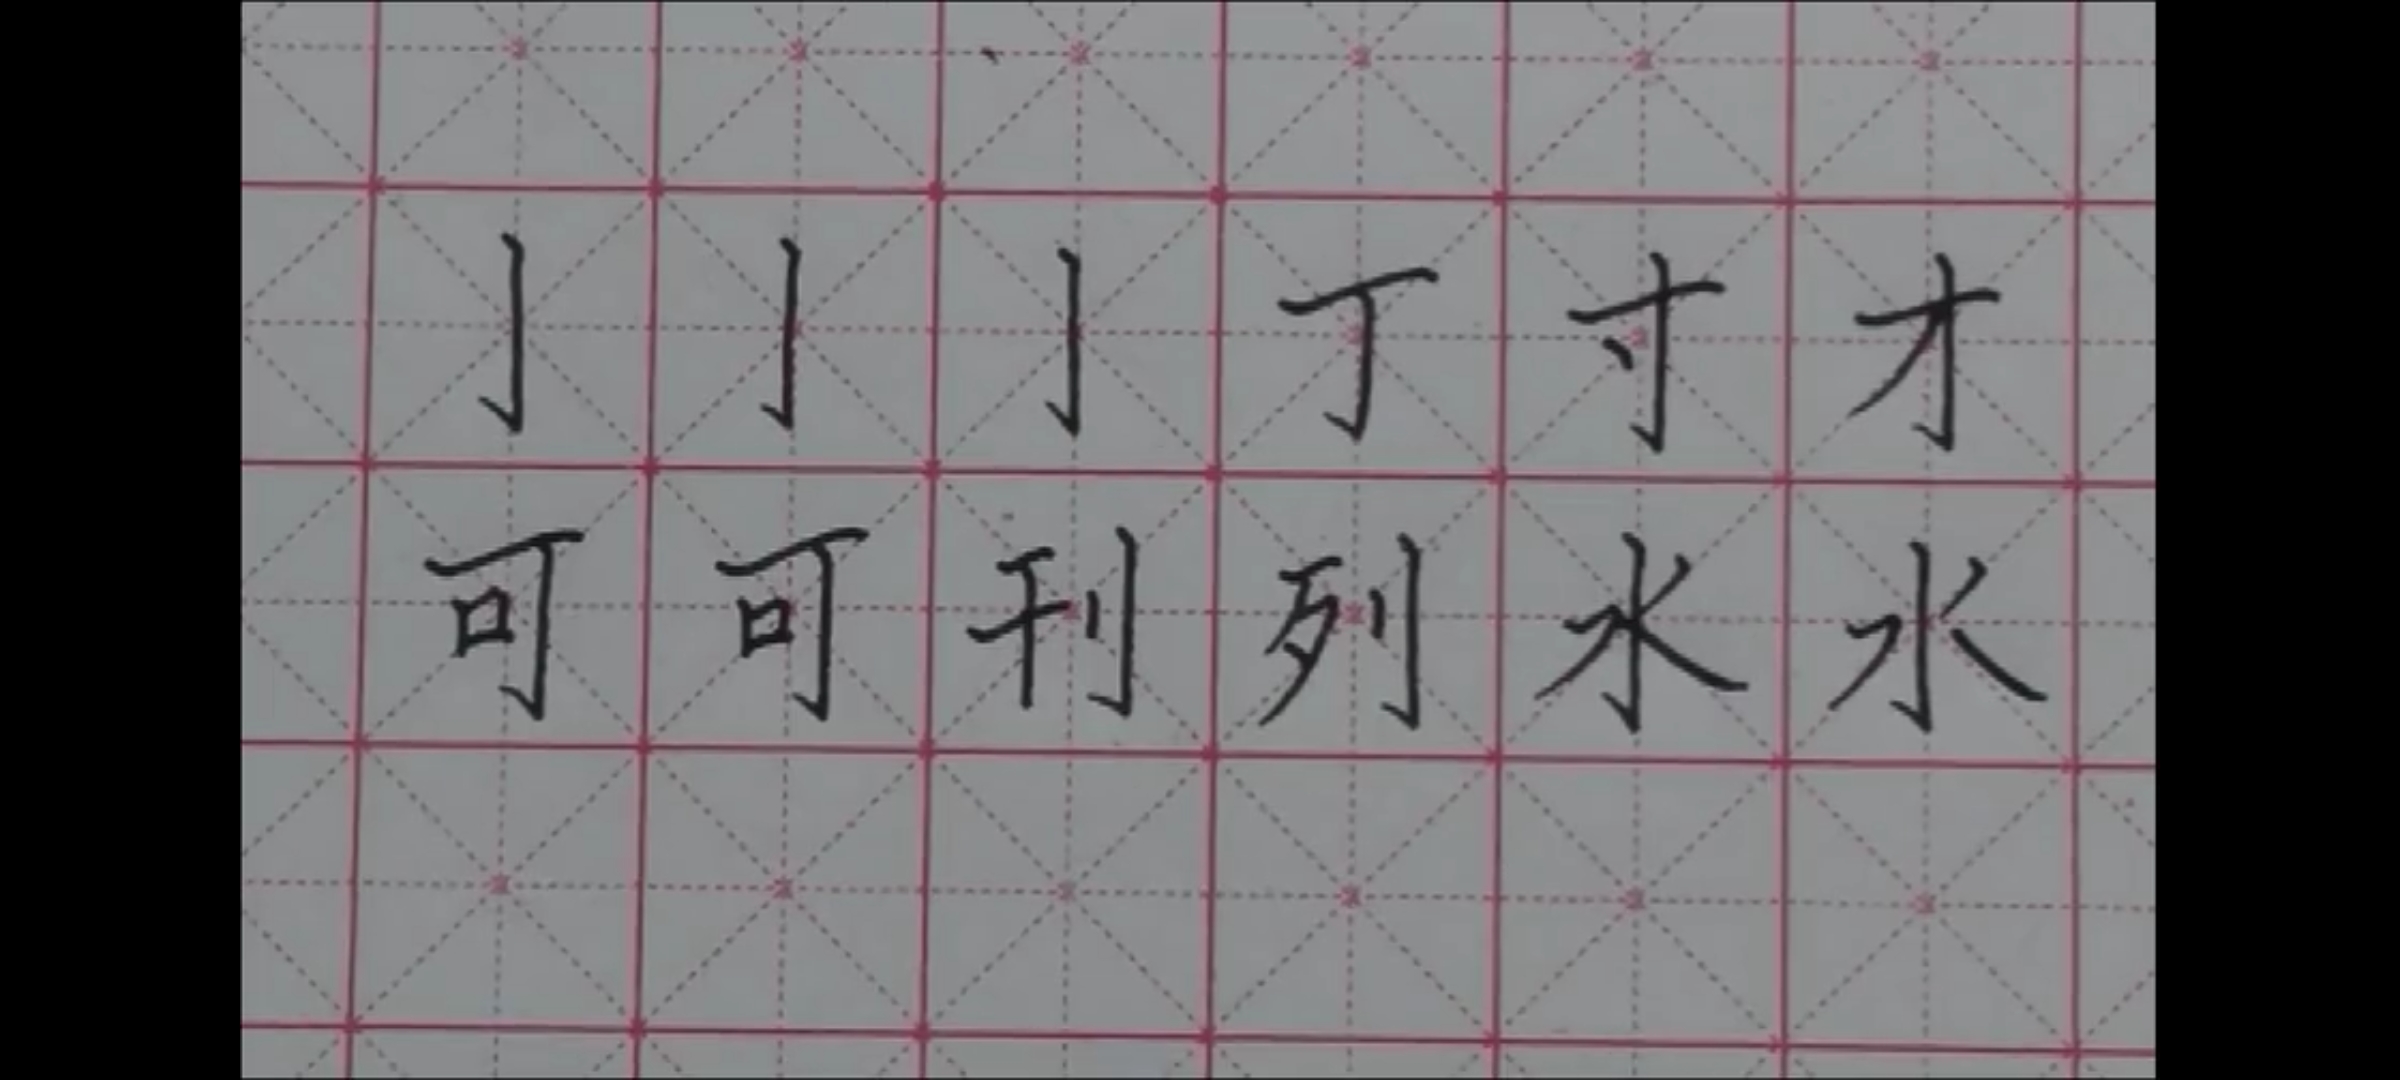 亅亅亅丁寸才
可可刊列水水